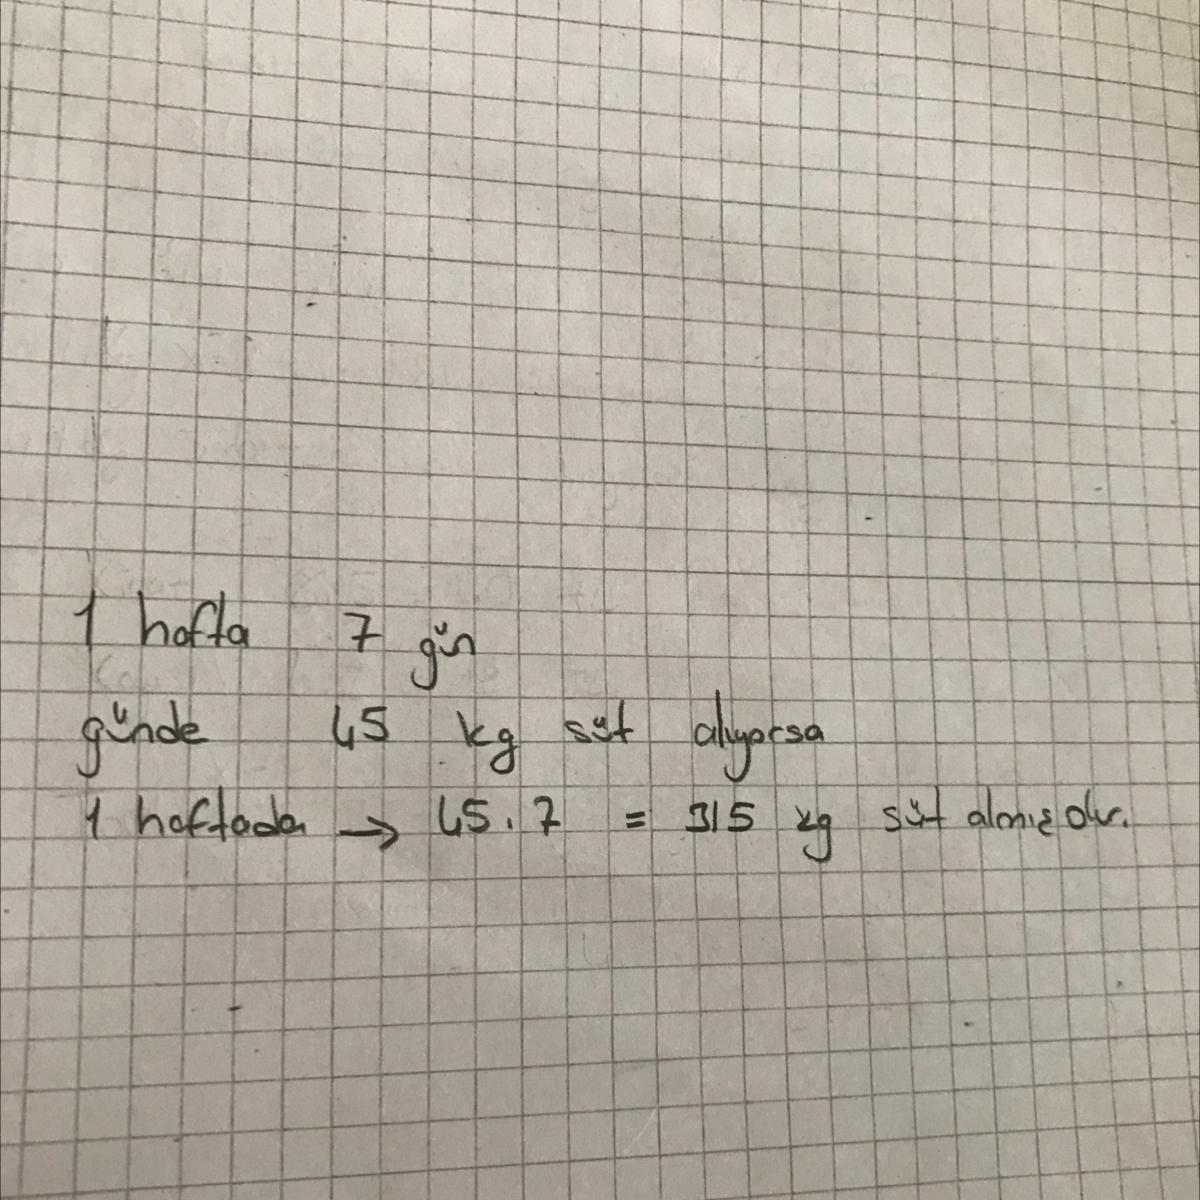 1 hafta 7 gün
günde 45 kg süt alıyorsa
1 haftada → 45.7 = 315 kg süt almış olur.